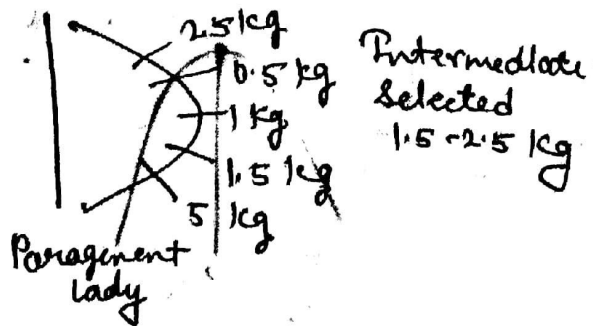 2.5 kg
0.5 kg
1 kg
1.5 kg
5 kg
Paragenent
lady
Intermediate
Selected
1.5-2.5 kg